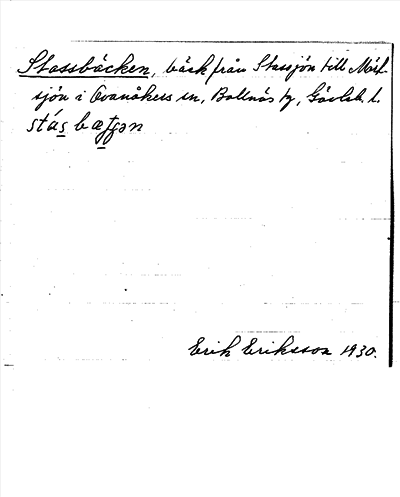 Stassbäcken, bäck från Stassjön till Mål-
sjön i Ovanåkers sn, Bollnäs tg, Gävleb. l.
stás bæʃʃən
Erik Eriksson 1930.